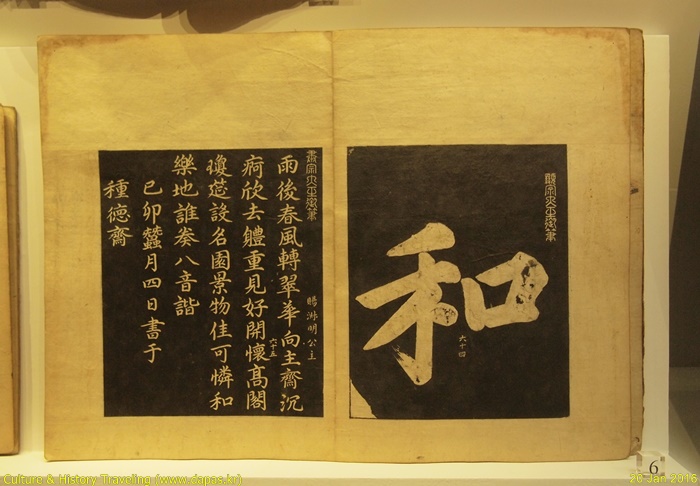 宗大王御筆
和
六十四
肅宗大王御筆
賜淑明公主
雨後春風轉翠華向主齋沉
六十五
痾欣去體重見好開懷高閣
瓊筵設名園景物佳可憐和
樂地誰奏八音諧
己卯蠶月四日書于
種德齋
6
Culture & History Traveling (www.dapas.kr)
20 Jan 2016